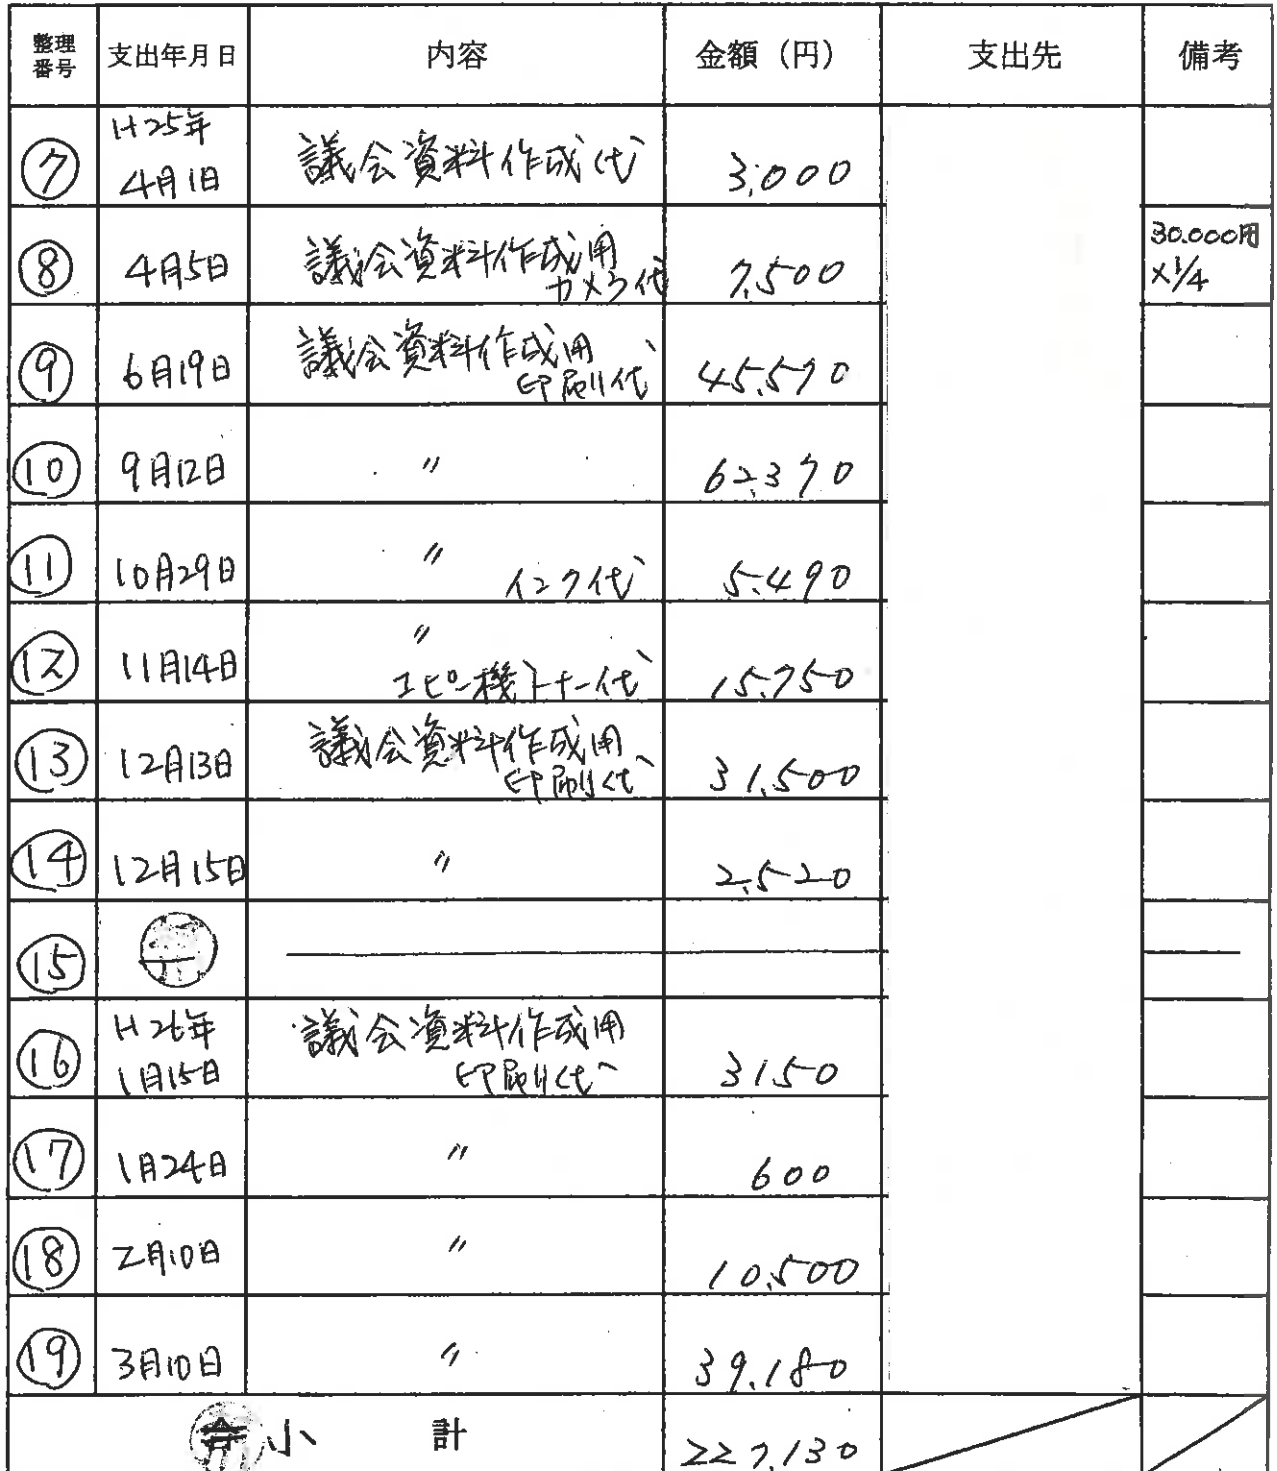 整理番号 支出年月日 内容 金額（円） 支出先 備考
⑦ H25年4月1日 議会資料作成代 3,000
⑧ 4月5日 議会資料作成用カメラ代 7,500 30.000円×1/4
⑨ 6月19日 議会資料作成用印刷代 45,570
⑩ 9月12日 〃 62,370
⑪ 10月29日 〃 インク代 5,490
⑫ 11月14日 〃 コピー機トナー代 15,750
⑬ 12月13日 議会資料作成用印刷代 31,500
⑭ 12月15日 〃 2,520
⑮
⑯ H26年1月15日 議会資料作成用印刷代 3150
⑰ 1月24日 〃 600
⑱ 2月10日 〃 10,500
⑲ 3月10日 〃 39,180
合小 計 227,130